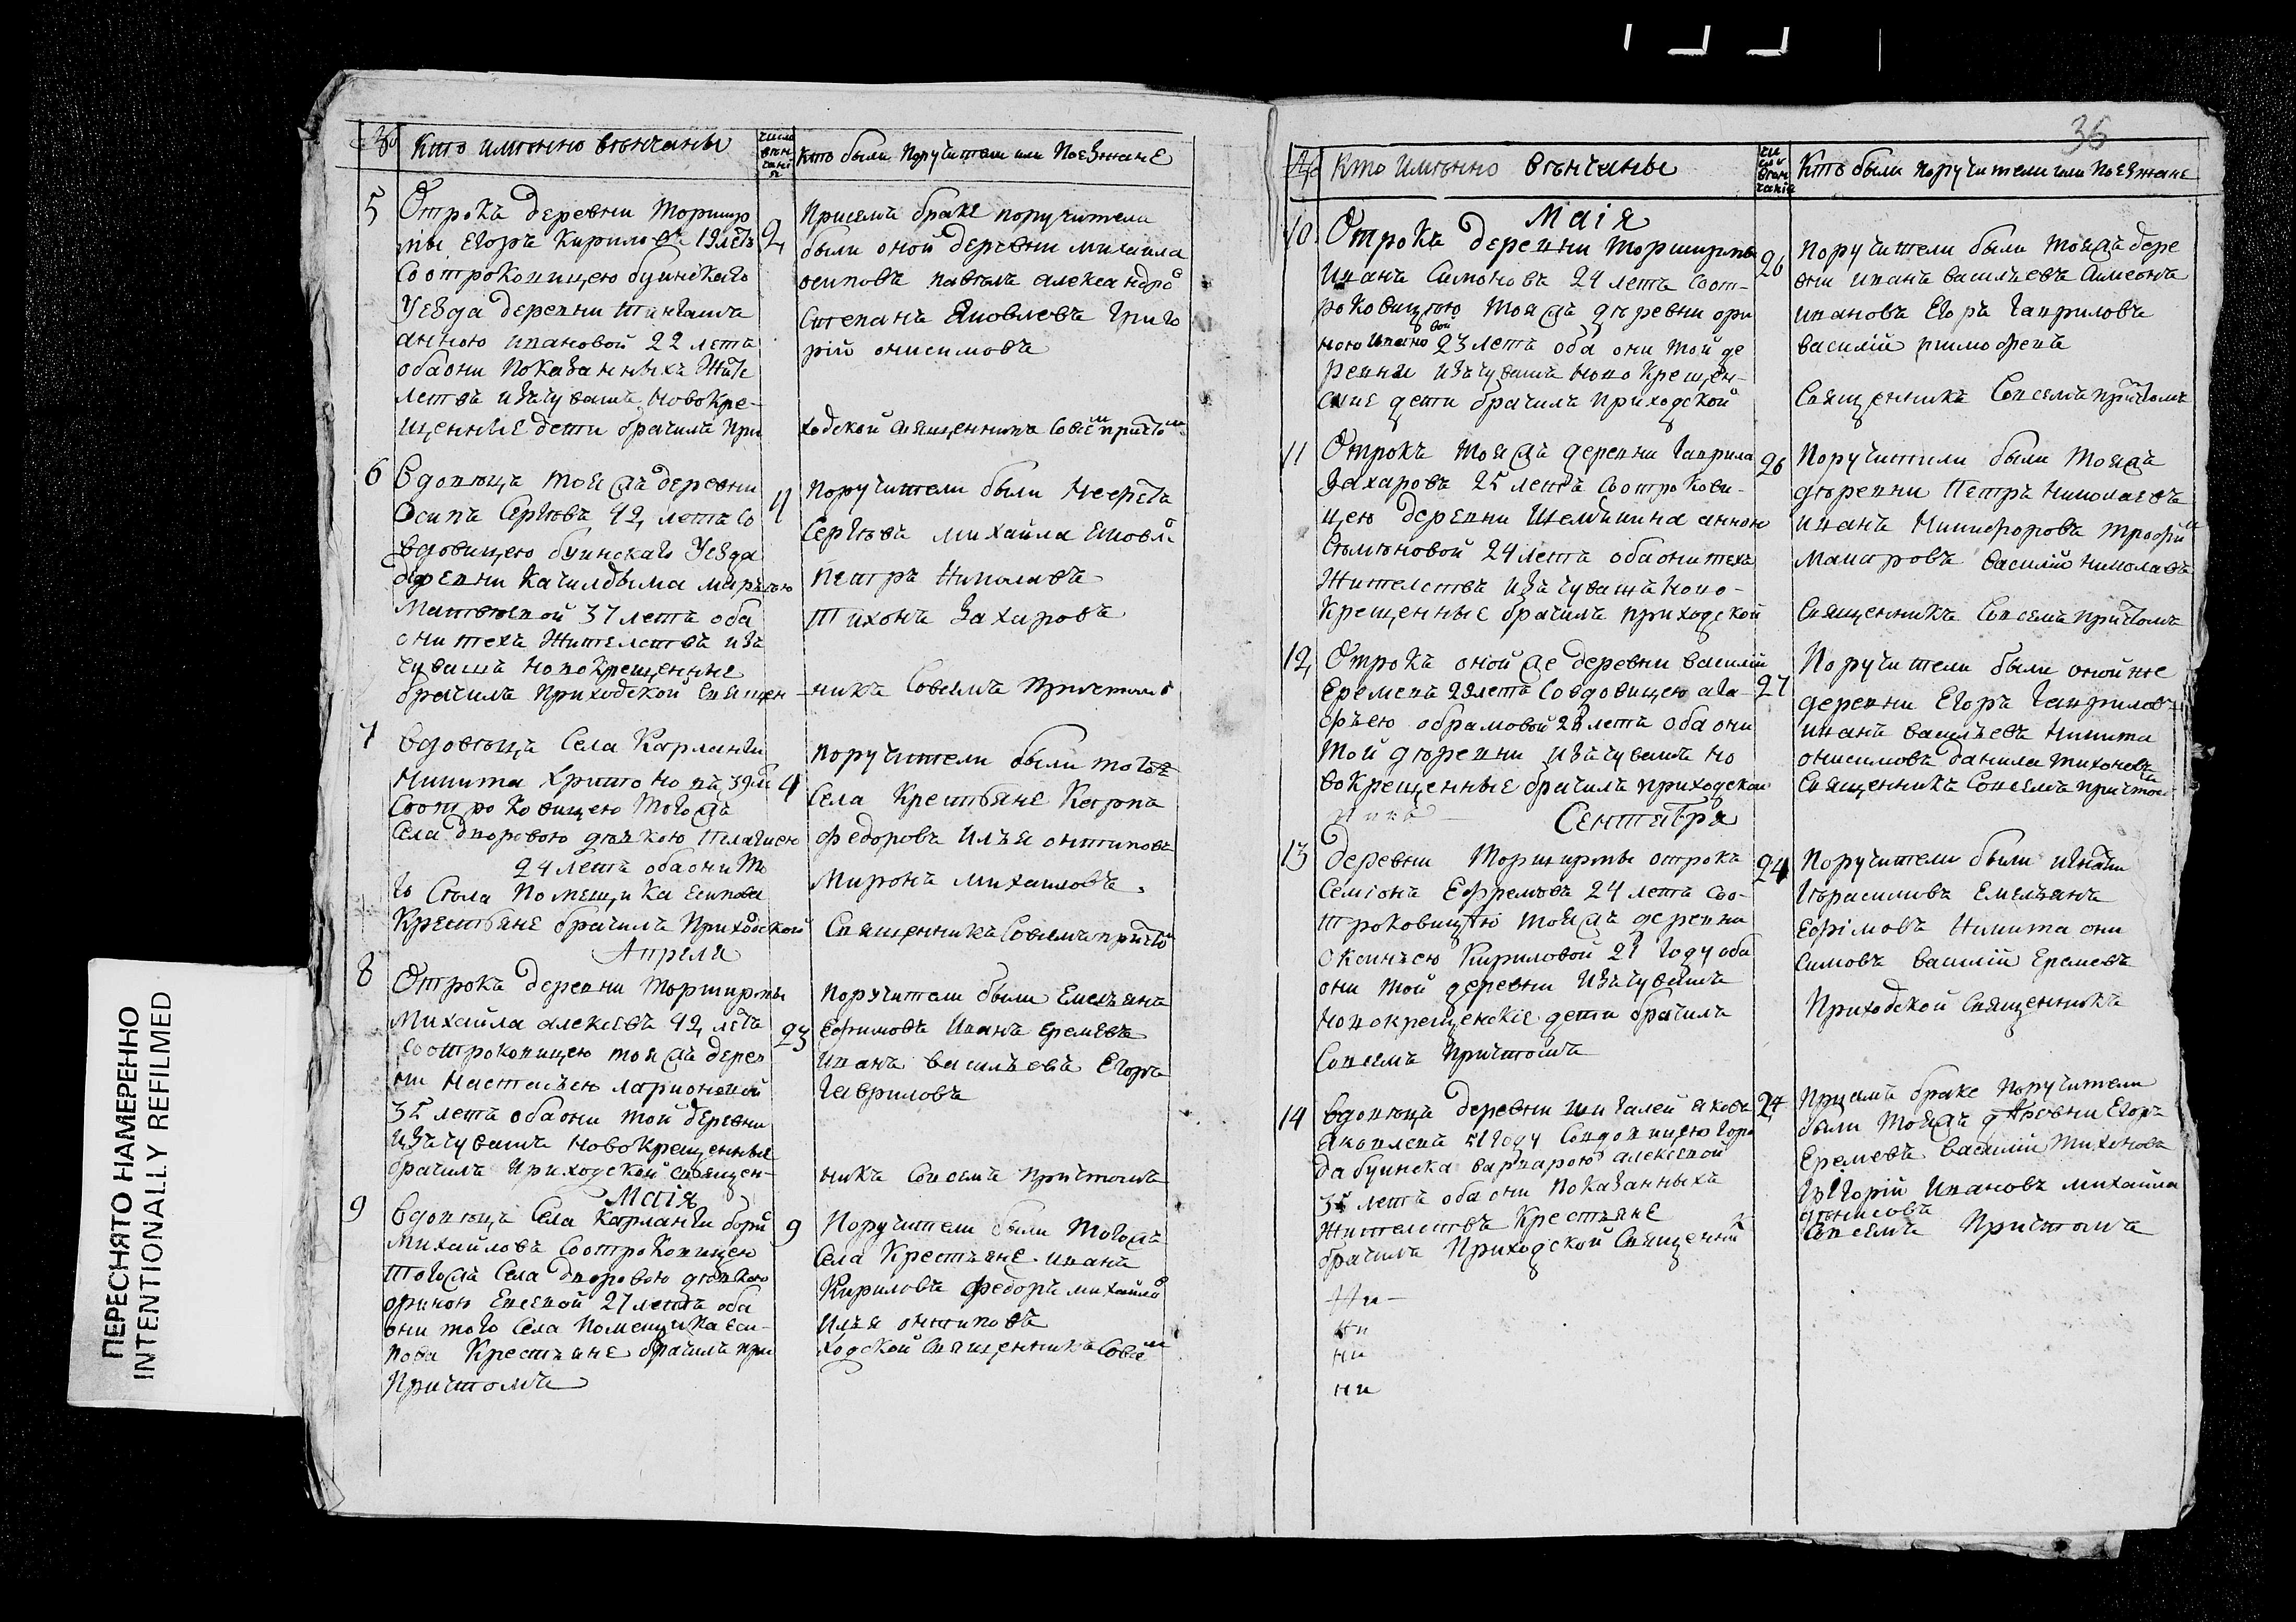 36
№ Кто имянно венчаны число венчания Кто были поручители или поезжане
5 Отрокъ деревни Торшир
мы Егоръ Кириловъ 19 летъ
Соотроковицею буинскаго
Уезда деревни Тингашъ
анною ивановой 22 летъ
оба они показанныхъ Жите
летвъ изъ чувашъ новокре-
щенные дети брачилъ При
2
Присемъ браке поручители
были оной деревни михайла
осиповъ павелъ александро
Степанъ Яковлевъ Григо
рій онисимовъ
ходской священникъ Совсемъ притчтом
6 Вдовецъ тояжъ деревни
Осипъ Сергеевъ 42 летъ Со
вдовицею буинскаго Уезда
деревни Качилдыма марьею
Матвеевой 37 летъ оба
они техъ Жителствъ изъ
чувашъ новокрещенные
брачилъ приходской Священ
4
поручители были
Сергеевъ михайла Яковл
петръ Николаевъ
Тихонъ Захаровъ
никъ Совсемъ Притчтом
7 Вдовецъ Села Карланги
Никита Харитоновъ 39 ле
Соотроковицею тогожъ
Села дворовою девкою Пелагиею
24 летъ оба они то
го Села Помещика Есипова
Крестьяне брачилъ Приходской
4
поручители были тогожъ
Села Крестьяне Карпъ
Федоровъ Илья онтиповъ
Миронъ михаиловъ
Священникъ Совсемъ притчтом
Апреля
8 Отрокъ деревни Торширмы
Михайла алексеевъ 42 летъ
Соотроковицею тояжъ дерев
ни Настасьею ларионовой
35 летъ оба они той деревни
изъ чувашъ новокрещенные
брачилъ приходской священ-
23
поручители были Емельянъ
Ефимовъ Иванъ Еремеевъ
иванъ васильевъ Егоръ
Гавриловъ
никъ Совсемъ притчтомъ
Маія
9 Вдовецъ Села Карланги бори
Михайловъ Соотроковицею
тогожъ Села дворовою девкою
ориною Евсевой 27 летъ оба
они того Села помещика еси-
пова Крестьяне брачилъ при
Притчтомъ
9
Поручители были тогожъ
Села Крестьяне иванъ
Кириловъ Федоръ михайло
Илья онтиповъ
ходской священникъ Совсем
№ Кто имянно венчаны число венчание Кто были поручители или поезжане
Маія
10 Отрокъ деревни Торширмы
Иванъ Симоновъ 24 летъ Соот-
роковицею тояжъ деревни ори
ною ивановой 23 летъ оба они той де
ревни изъ чувашъ новокрещен-
ские дети брачилъ приходской
26
поручители были тояжъ дере
вни иванъ васильевъ Симеонъ
ивановъ Егоръ Гавриловъ
василій тимофеевъ
Священникъ Совсемъ притчтомъ
11 Отрокъ тояжъ деревни Гаврила
Захаровъ 25 летъ Соотрокови-
цею деревни анною
Семеновой 24 летъ оба они техъ
Жителствъ изъ чувашъ ново-
крещенные брачилъ приходской
26
Поручители были тояжъ
деревни Петръ Николаевъ
иванъ Никифоровъ трофим
Макаровъ Василій Николаевъ
Священникъ Совсемъ притчтомъ
12 Отрокъ оной же деревни василій
Еремеевъ 29 летъ Со вдовицею ага-
фьею обрамовой 28 летъ оба они
той деревни изъ чувашъ но
вокрещенные брачилъ приходской
27
Поручители были оной же
деревни Егоръ Гавриловъ
иванъ васильевъ Никита
онисимовъ данила тихоновъ
Священникъ Совсемъ притчтомъ
Сентября
13 деревни Торширмы отрокъ
Семіонъ Ефремовъ 24 летъ Соо-
троковицею тояжъ деревни
Оксиньею Кириловой 21 году оба
они той деревни изъ чувашъ
новокрещенскіе дети брачилъ
Совсемъ притчтомъ
24
Поручители были игнатей
Герасимовъ Емельянъ
Ефимовъ Никита они
симовъ василій Еремеевъ
Приходской Священникъ
14 Вдовецъ деревни Шигалей яковъ
Яковлевъ 51 году Совдовицею горо
да буинска варварою алексеевой
35 летъ оба они показанныхъ
Жителствъ Крестьяне
брачилъ Приходской Священник
24
Присемъ браке поручители
были тояжъ деревни Егоръ
Еремеевъ Василій тихоновъ
Григорій ивановъ михайла
денисовъ
Совсемъ Притчтомъ
Ни
ни
ни
ни
ПЕРЕСНЯТО НАМЕРЕННО
INTENTIONALLY REFILMED